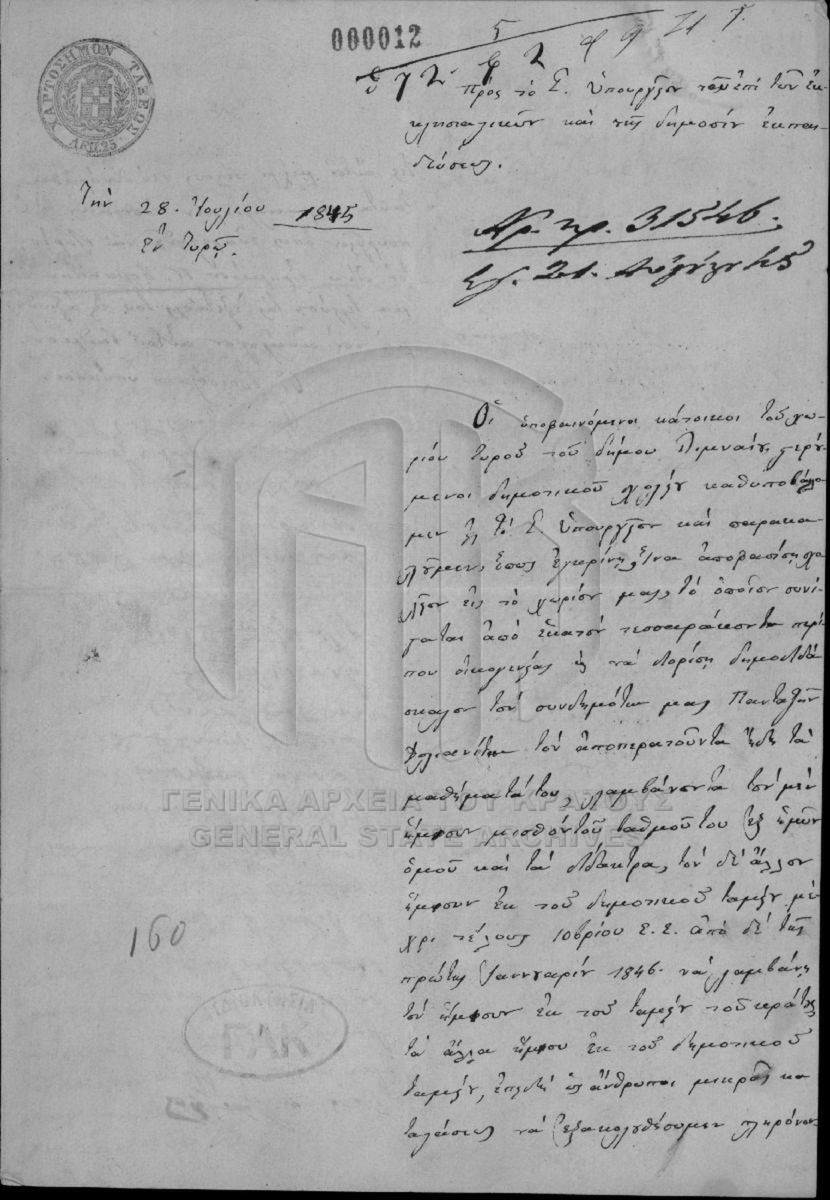 ΧΑΡΤΟΣΗΜΟΝ ΤΑΞΕΩΣ
ΛΕΠ. 25
000012
5
Πρὸς τὸ Σ. Ὑπουργεῖον τῶν ἐπὶ τῶν ἐκ-
κλησιαστικῶν καὶ τῆς δημοσίου ἐκπαι-
δεύσεως.
Τὴν 28. Ἰουλίου 1845
Ἐν Τυρῷ.
Ἀρ. πρ. 31546.
21. Αὐγούστου 45
Οἱ ὑποφαινόμενοι κάτοικοι τοῦ χω-
ρίου Τυροῦ τοῦ δήμου Λιμναίου, στερού-
μενοι δημοτικοῦ σχολείου καθυποβάλλο-
μεν εἰς τὸ Σ. Ὑπουργεῖον καὶ παρακα-
λοῦμεν, ὅπως ἐγκρίνῃ, ἵνα ἀποφασίσῃ σχο-
λεῖον εἰς τὸ χωρίον μας, τὸ ὁποῖον συνί-
σταται ἀπὸ ἑκατὸν τεσσαράκοντα περί-
που οἰκογενείας καὶ νὰ διορίσῃ δημοδιδά-
σκαλον τὸν συνδημότην μας Πανταζῆν
τὸν ἀποπερατοῦντα ἤδη τὰ
μαθήματά του, λαμβάνοντα τὸν μὲν
ἥμισυν μισθὸν τοῦ βαθμοῦ του ἐξ ἡμῶν
ὁμοῦ καὶ τὰ δίδακτρα, τὸν δὲ ἄλλον
ἥμισυν ἐκ τοῦ δημοτικοῦ ταμείου μέ-
χρι τέλους 10βρίου Ε. Ε. ἀπὸ δὲ τῆς
πρώτης Ἰαννουαρίου 1846. νὰ λαμβάνῃ
τὸν ἥμισυν ἐκ τοῦ ταμείου τοῦ κράτους
τὰ ἄλλα ἥμισυ ἐκ τοῦ δημοτικοῦ
ταμείου, ἐπειδὴ ὡς ἄνθρωποι μικρᾶς κα-
ταστάσεως νὰ ἐξακολουθήσωμεν πληρόνον-
160
ΓΕΝΙΚΑ ΑΡΧΕΙΑ ΤΟΥ ΚΡΑΤΟΥΣ
GENERAL STATE ARCHIVES